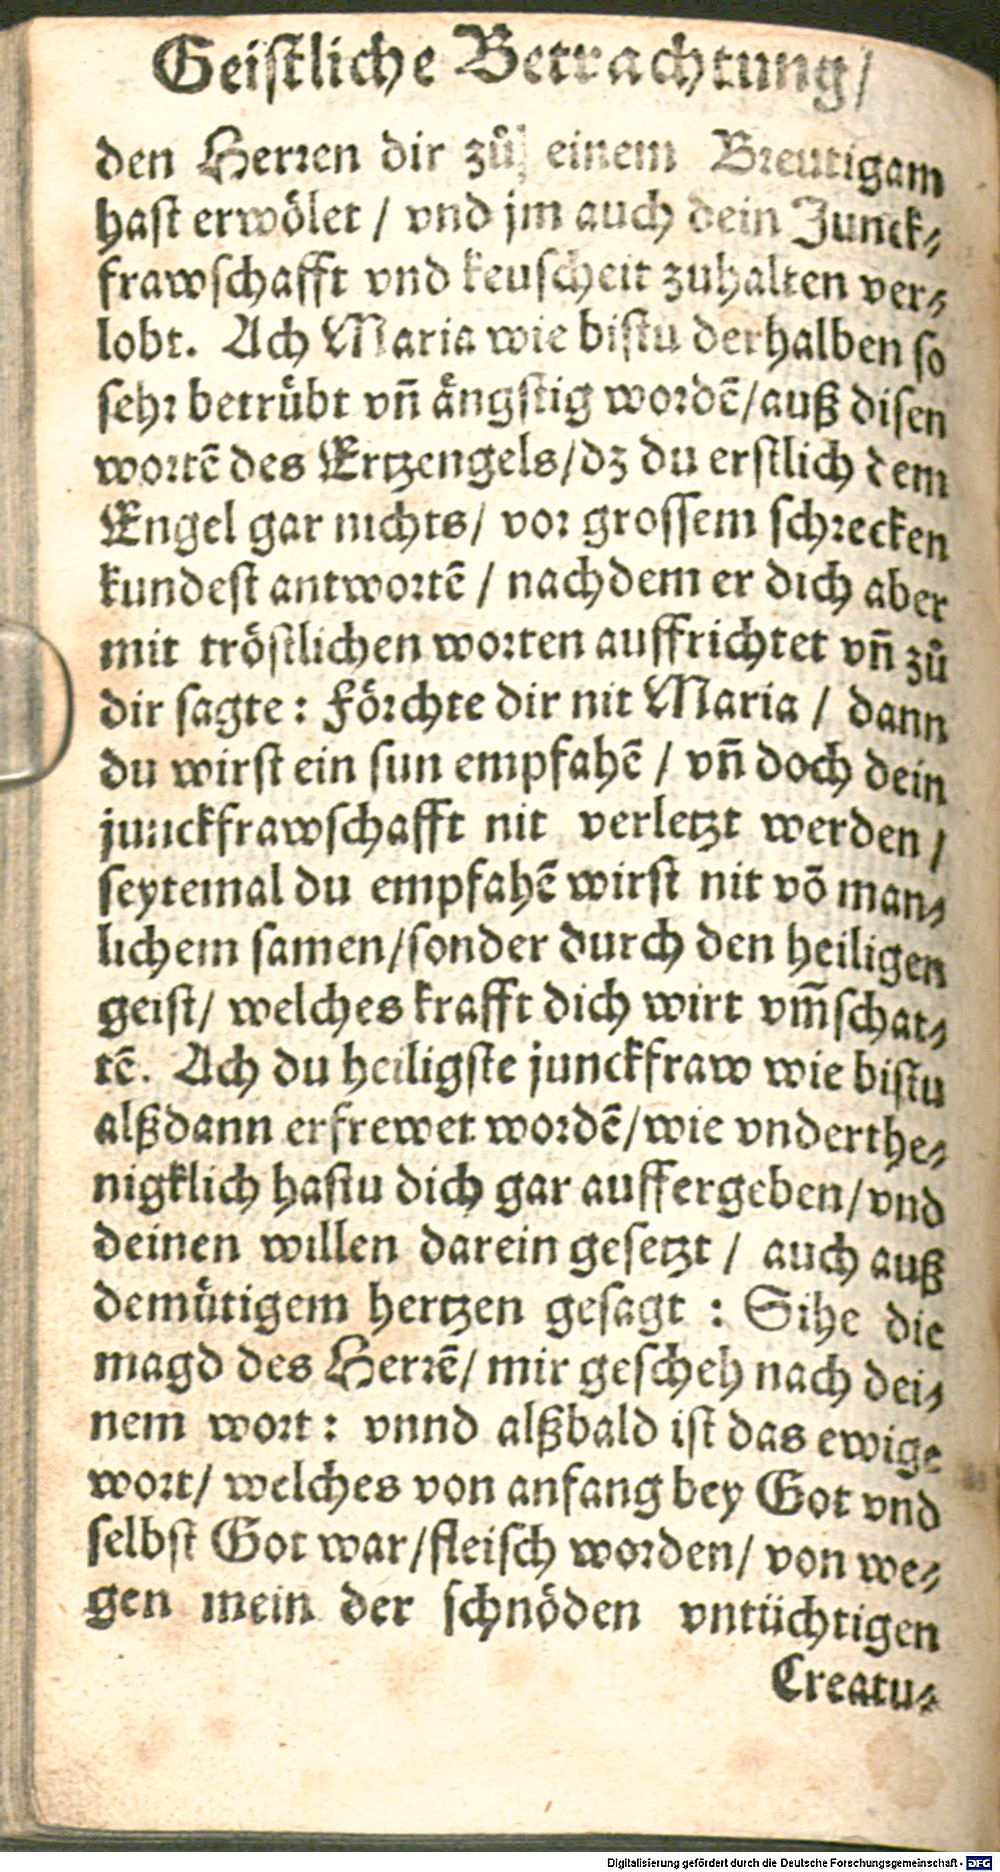 Geistliche Betrachtung/
den Herren dir zůͦ einem Breutigam
hast erwölet / vnd jm auch dein Junck⸗
frawschafft vnd keuscheit zuhalten ver⸗
lobt. Ach Maria wie bistu derhalben so
sehr betrübt vñ ängstig wordẽ/auß disen
wortẽ des Ertzengels/dz du erstlich dem
Engel gar nichts/ vor grossem schrecken
kundest antwortẽ / nachdem er dich aber
mit tröstlichen worten auffrichtet vñ zů
dir sagte: Förchte dir nit Maria / dann
du wirst ein sun empfahẽ / vñ doch dein
junckfrawschafft nit verletzt werden /
seytemal du empfahẽ wirst nit võ man⸗
lichem samen/sonder durch den heiligen
geist/ welches krafft dich wirt vm̃schat⸗
tẽ. Ach du heiligste junckfraw wie bistu
alßdann erfrewet wordẽ/wie vnderthe⸗
nigklich hastu dich gar auffergeben/vnd
deinen willen darein gesetzt / auch auß
demütigem hertzen gesagt : Sihe die
magd des Herrẽ/ mir gescheh nach dei⸗
nem wort: vnnd alßbald ist das ewige
wort/ welches von anfang bey Got vnd
selbst Got war/fleisch worden/ von we⸗
gen mein der schnöden vntüchtigen
Creatu⸗
Digitalisierung gefördert durch die Deutsche Forschungsgemeinschaft - DFG